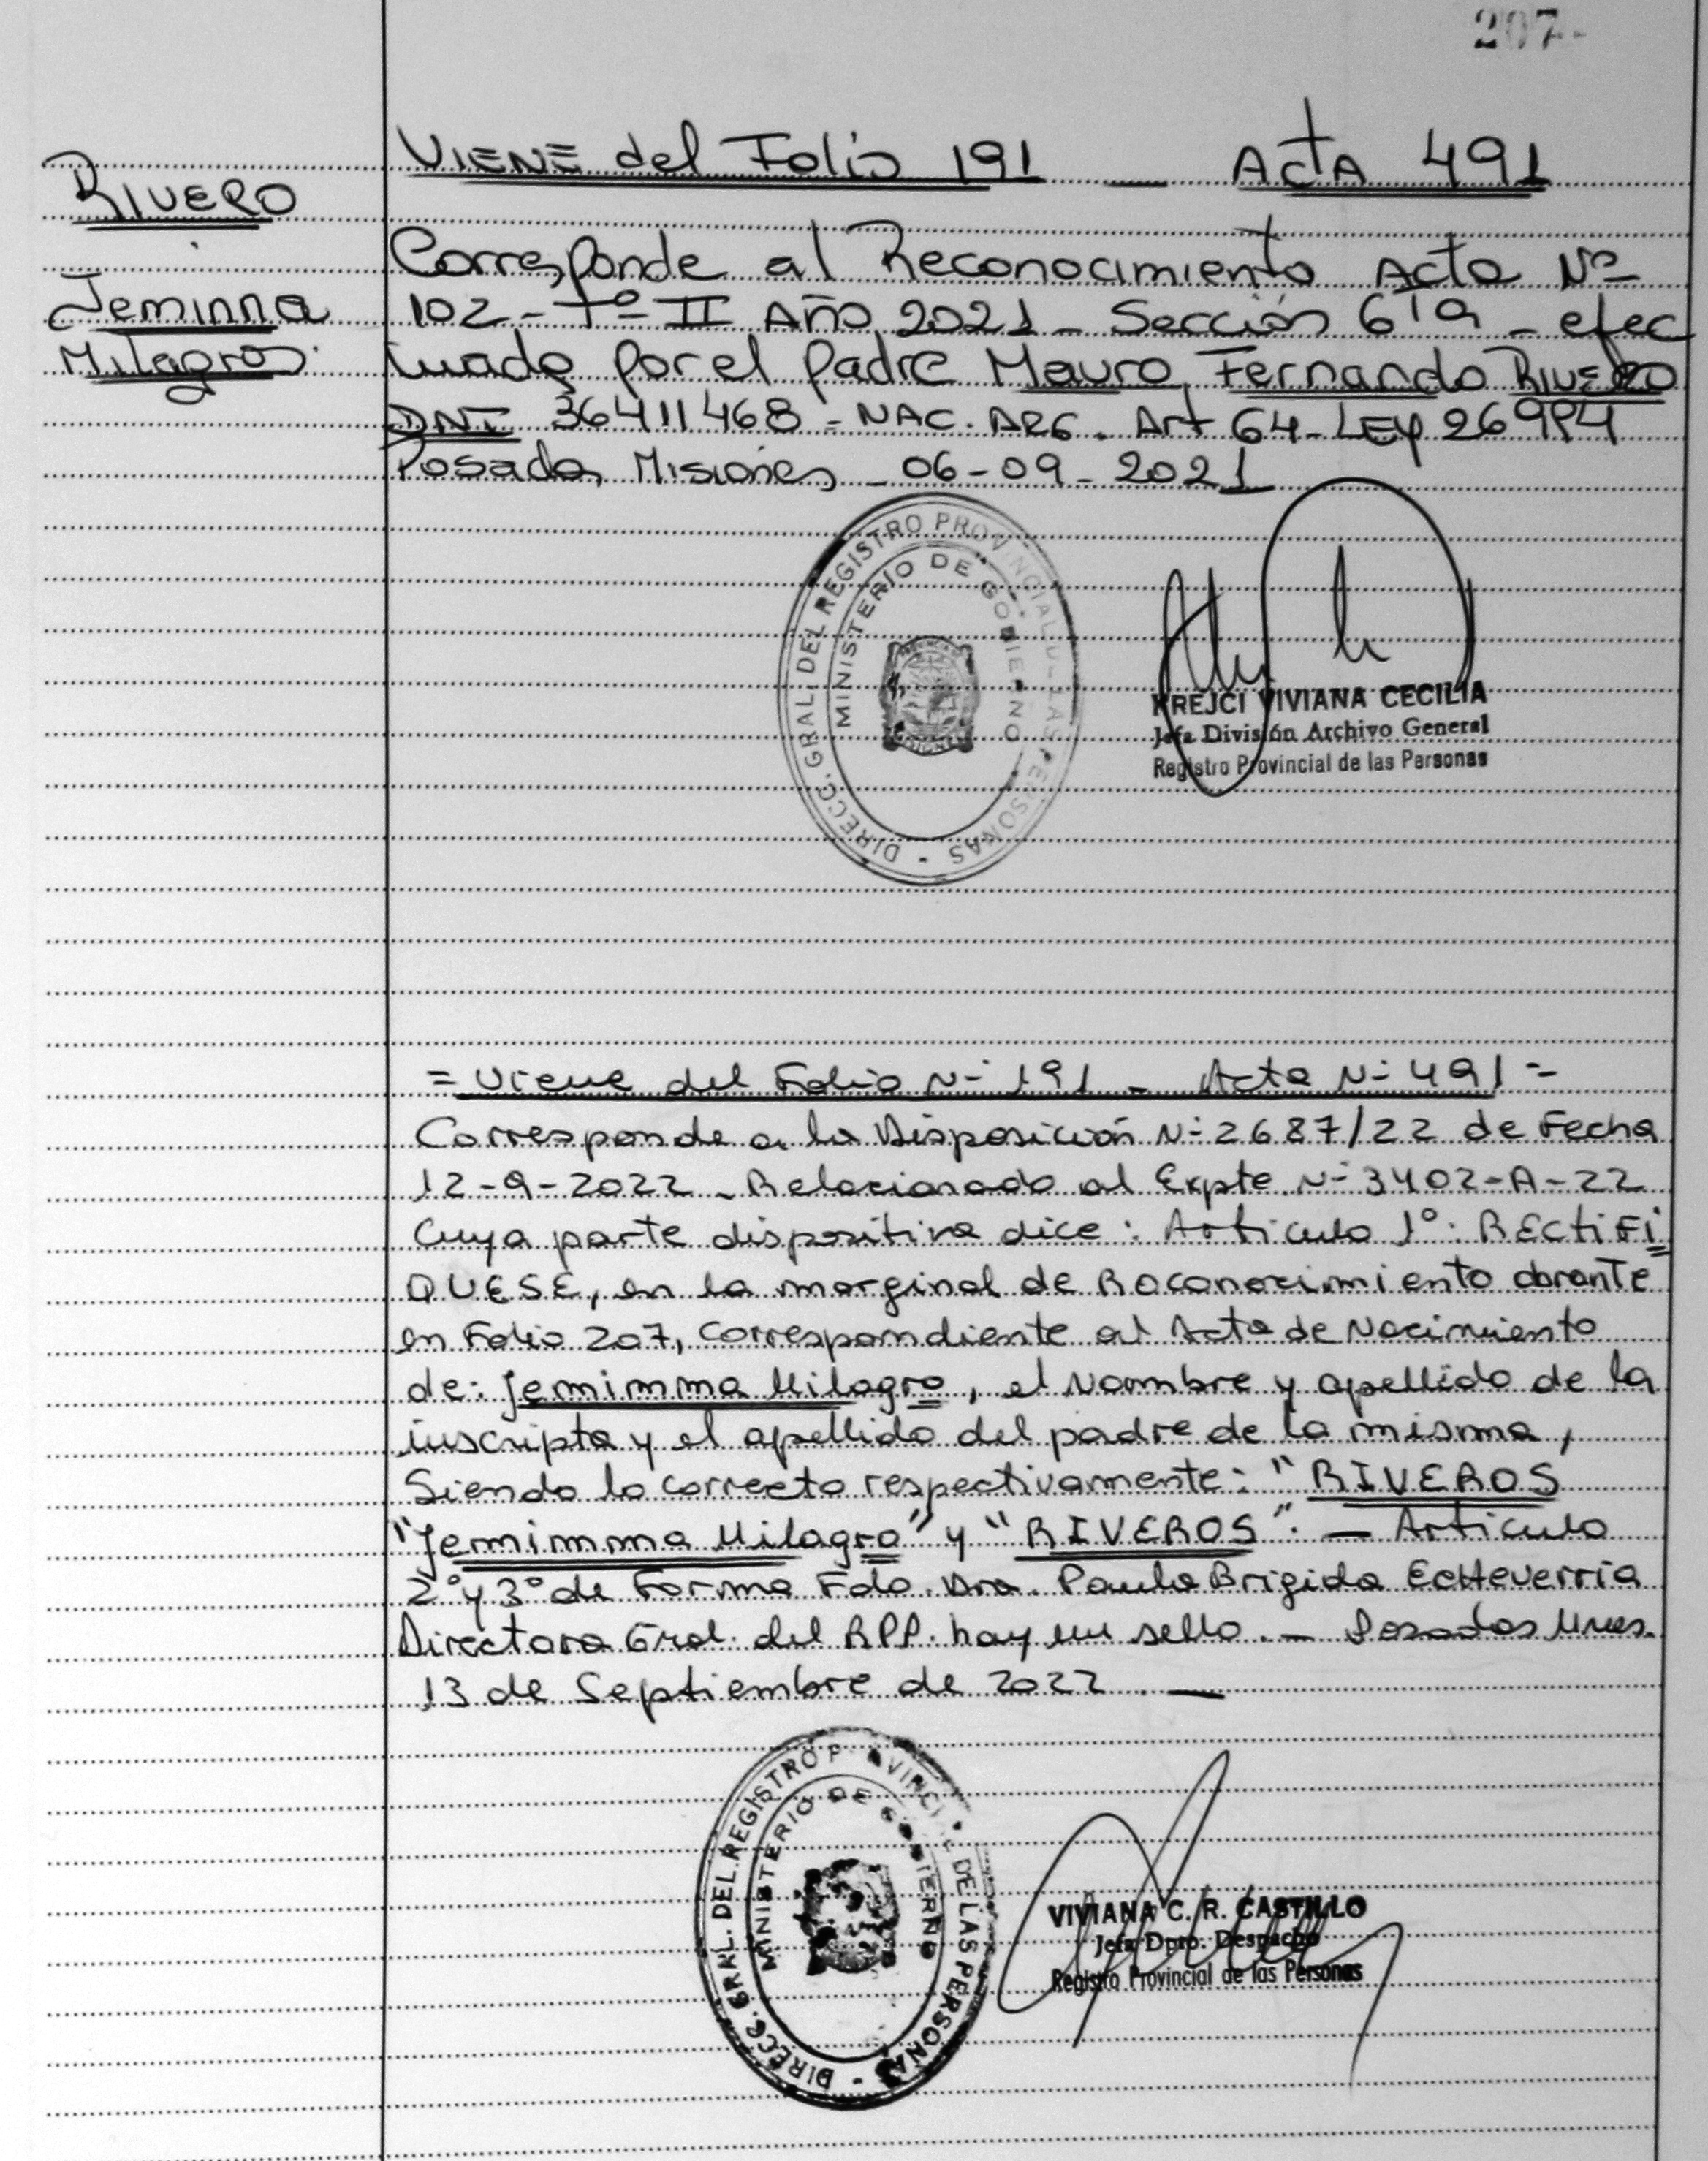 207-
VIENE del Folio 191 — ActA 491
RIVERO
Jeminna
Milagros.
Corresponde al Reconocimiento Acta Nº
102 - Tº II Año 2021 - Sección 6ta - efec
tuado por el padre Mauro Fernando RIVERO
DNI 36411468 - NAC. ARG. Art 64 - LEY 26994
Posadas, Misiones, - 06-09-2021
DIRECC. GRAL. DEL REGISTRO PROVINCIAL DE LAS PERSONAS -
MINISTERIO DE GOBIERNO
KREJCI VIVIANA CECILIA
Jefa División Archivo General
Registro Provincial de las Personas
= Viene del Folio N- 191 - Acta N- 491 =
Corresponde a la Disposición N- 2687/22 de Fecha
12-9-2022 - Relacionado al Expte N- 3402-A-22
Cuya parte dispositiva dice: Articulo 1º: RECtiFi
QUESE, en la marginal de Reconocimiento obrante
en Folio 207, correspondiente al Acta de Nacimiento
de: Jemimma Milagro, el Nombre y apellido de la
inscripta y el apellido del padre de la misma,
Siendo lo correcto respectivamente: "RIVEROS
"Jemimma Milagro" y "RIVEROS". — Articulo
2º y 3º de Forma Fdo. Dra. Paula Brigida Echeverria
Directora Gral. del RPP. hay un sello. — Posadas Mnes.
13 de Septiembre de 2022. —
DIRECC. GRAL. DEL REGISTRO PROVINCIAL DE LAS PERSONAS -
MINISTERIO DE GOBIERNO
VIVIANA C. R. CASTILLO
Jefa Dpto. Despacho
Registro Provincial de las Personas